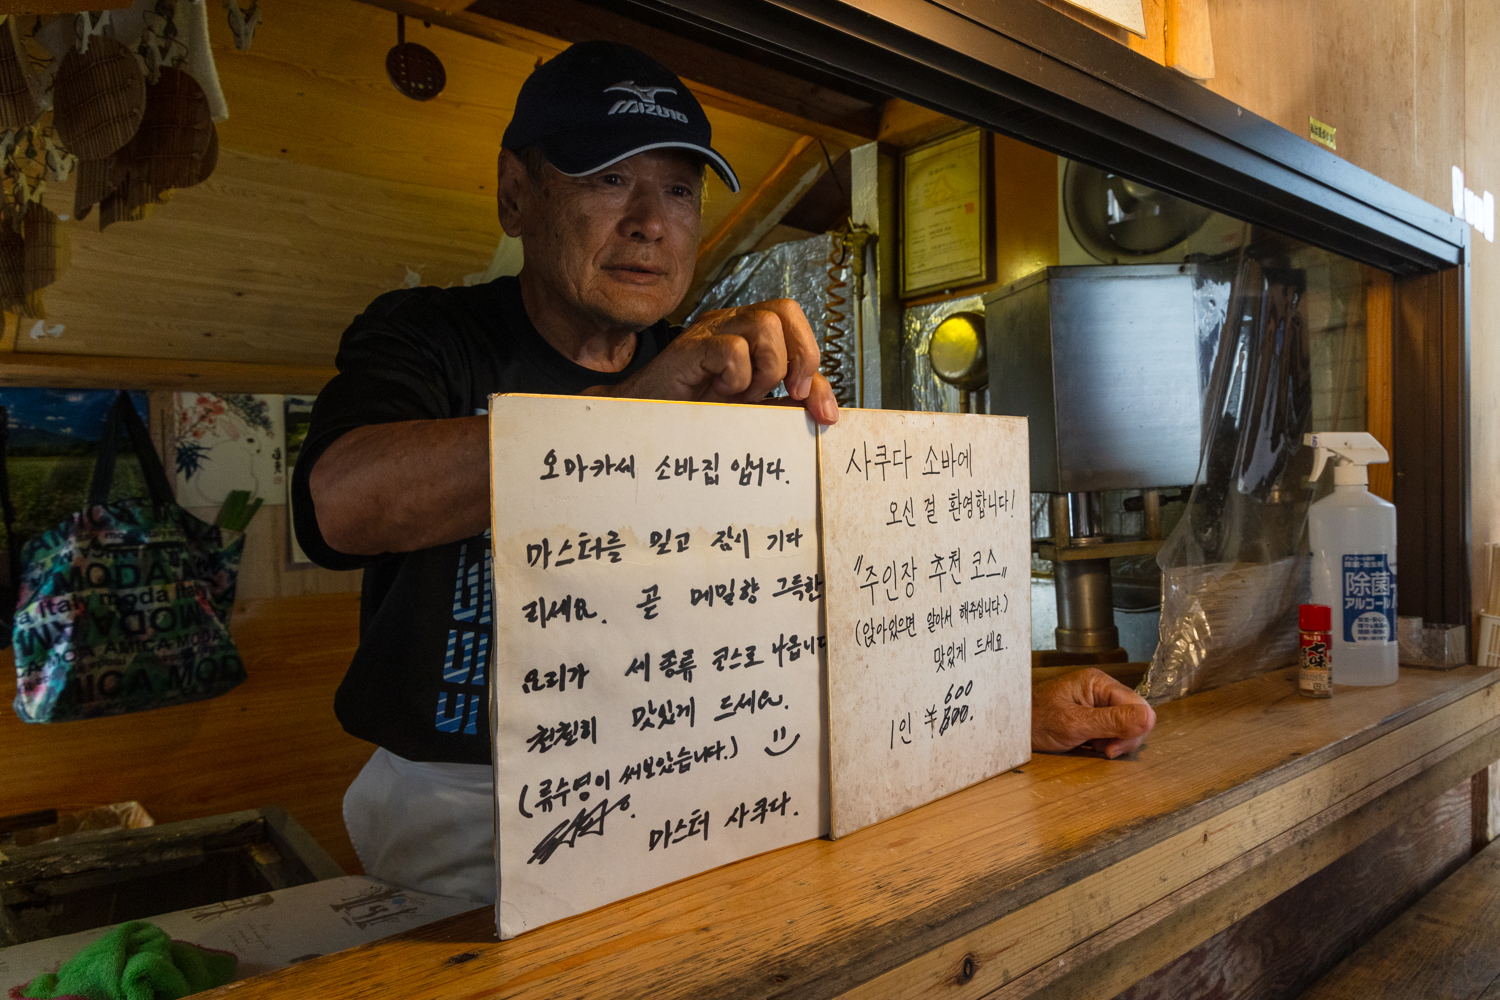 MIZUNO
오마카세 소바집 입니다.
마스터를 믿고 잠시 기다
리세요. 곧 메밀향 그득한
요리가 세 종류 코스로 나옵니다
천천히 맛있게 드세요.
(류수영이 써보았습니다.)
마스터 사쿠다.
사쿠다 소바에
오신 걸 환영합니다!
"주인장 추천 코스"
(앉아있으면 알아서 해주십니다.)
맛있게 드세요.
600
1인 ¥
MODA
Italy moda Ital
AMICA MODA
AMICA MOD
除菌
アルコール
七味